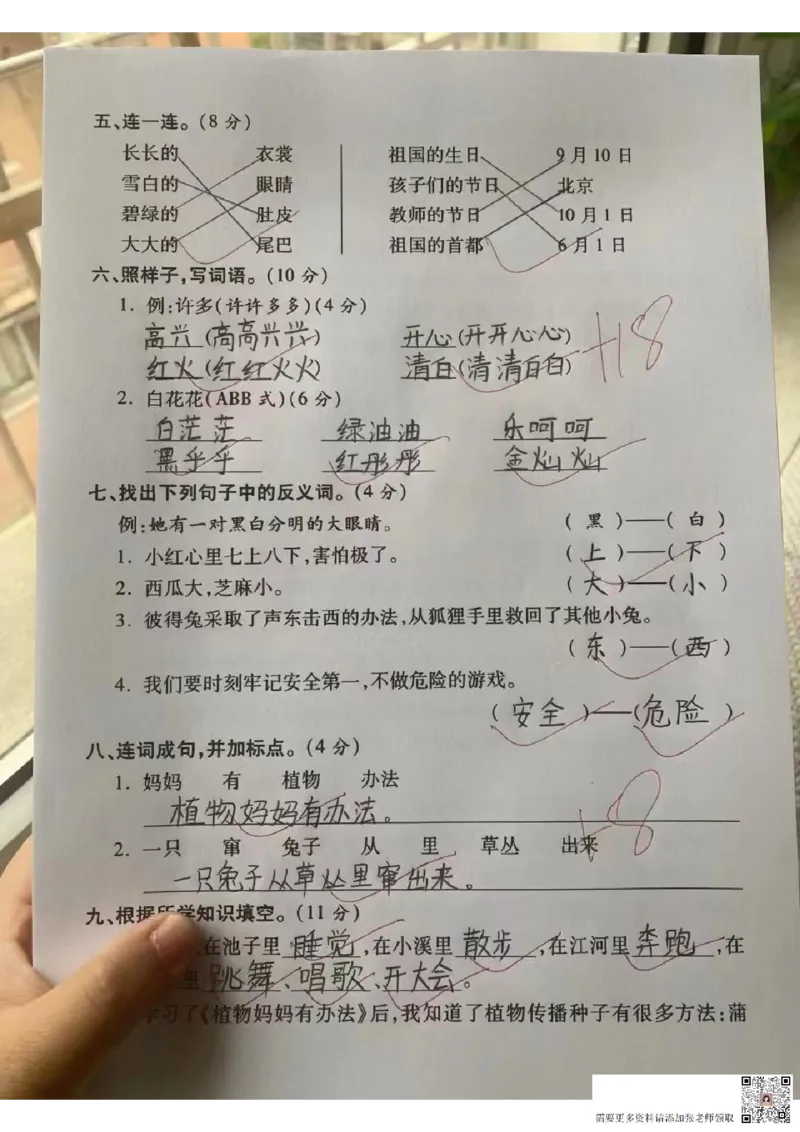 五、连一连。(8分)
长长的 衣裳 祖国的生日 9月10日
雪白的 眼睛 孩子们的节日 北京
碧绿的 肚皮 教师的节日 10月1日
大大的 尾巴 祖国的首都 6月1日
六、照样子,写词语。(10分)
1. 例:许多(许许多多)(4分)
高兴(高高兴兴) 开心(开开心心)
红火(红红火火) 清白(清清白白)
+18
2. 白花花(ABB式)(6分)
白茫茫 绿油油 乐呵呵
黑乎乎 红彤彤 金灿灿
七、找出下列句子中的反义词。(4分)
例:她有一对黑白分明的大眼睛。 (黑)—(白)
1. 小红心里七上八下,害怕极了。 (上)—(下)
2. 西瓜大,芝麻小。 (大)—(小)
3. 彼得兔采取了声东击西的办法,从狐狸手里救回了其他小兔。
(东)—(西)
4. 我们要时刻牢记安全第一,不做危险的游戏。
(安全)—(危险)
八、连词成句,并加标点。(4分)
1. 妈妈 有 植物 办法
植物妈妈有办法。
+8
2. 一只 窜 兔子 从 里 草丛 出来
一只兔子从草丛里窜出来。
九、根据所学知识填空。(11分)
在池子里睡觉,在小溪里散步,在江河里奔跑,在
里跳舞、唱歌、开大会。
学习了《植物妈妈有办法》后,我知道了植物传播种子有很多方法:蒲
需要更多资料请添加张老师领取